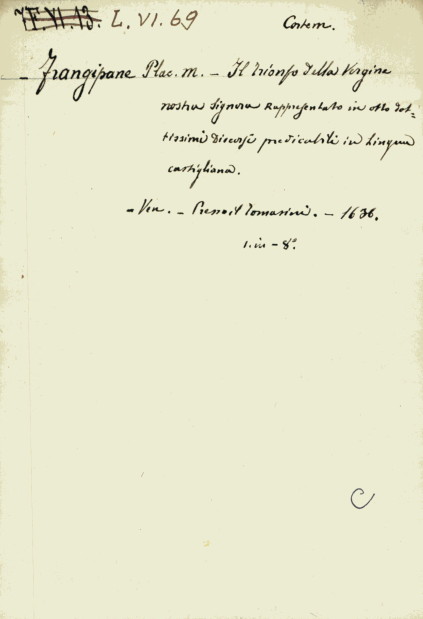 7F.VI.13. L.VI.69
Contem.
Frangipane Plac. m. – Il Trionfo della Vergine
nostra signora Rappresentato in otto dot=
tissimi Discorsi predicabili in Lingua
castigliana.
– Ven. – Presso il Tomasini. – 1636.
1. in – 8°
C